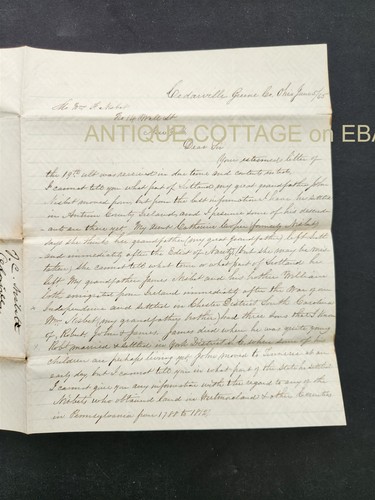 Cedarville Greene Co. Ohio June
Mr Wm A Nisbet
No 14 Wall St
ANTIQUE COTTAGE on EBA
Dear Sir
Your esteemed letter of
the 19th ult was received in due time and contents noted
I cannot tell you what part of Scotland my great grandfather John
Nisbet moved from but from the best information I have he settled
in Antrim County Ireland, and I presume some of his descend-
ants are there yet. My Aunt Catherine formerly Nisbet
says she thinks her grandfather (my great grandfather) left Scotland
immediately after the Edict of but she may be mis-
taken, she cannot tell what town or what part of Scotland he
left My grandfather James Nisbet and his brother William
both emigrated from Ireland immediately after the War of
Independence and settled in Chester District South Carolina
Wm Nisbet (my grandfathers brother) had three sons that I know
of, Robert John & James. James died when he was quite young
Robt married & settled in York District S.C. where some of his
children are perhaps living yet John moved to at an
early day but I cannot tell you in what part of the State he settled
I cannot give you any information with regard to any of the
Nisbets who obtained land in Westmoreland & other Counties
in Pennsylvania from 1700 to 1812
J. C. Nisbet